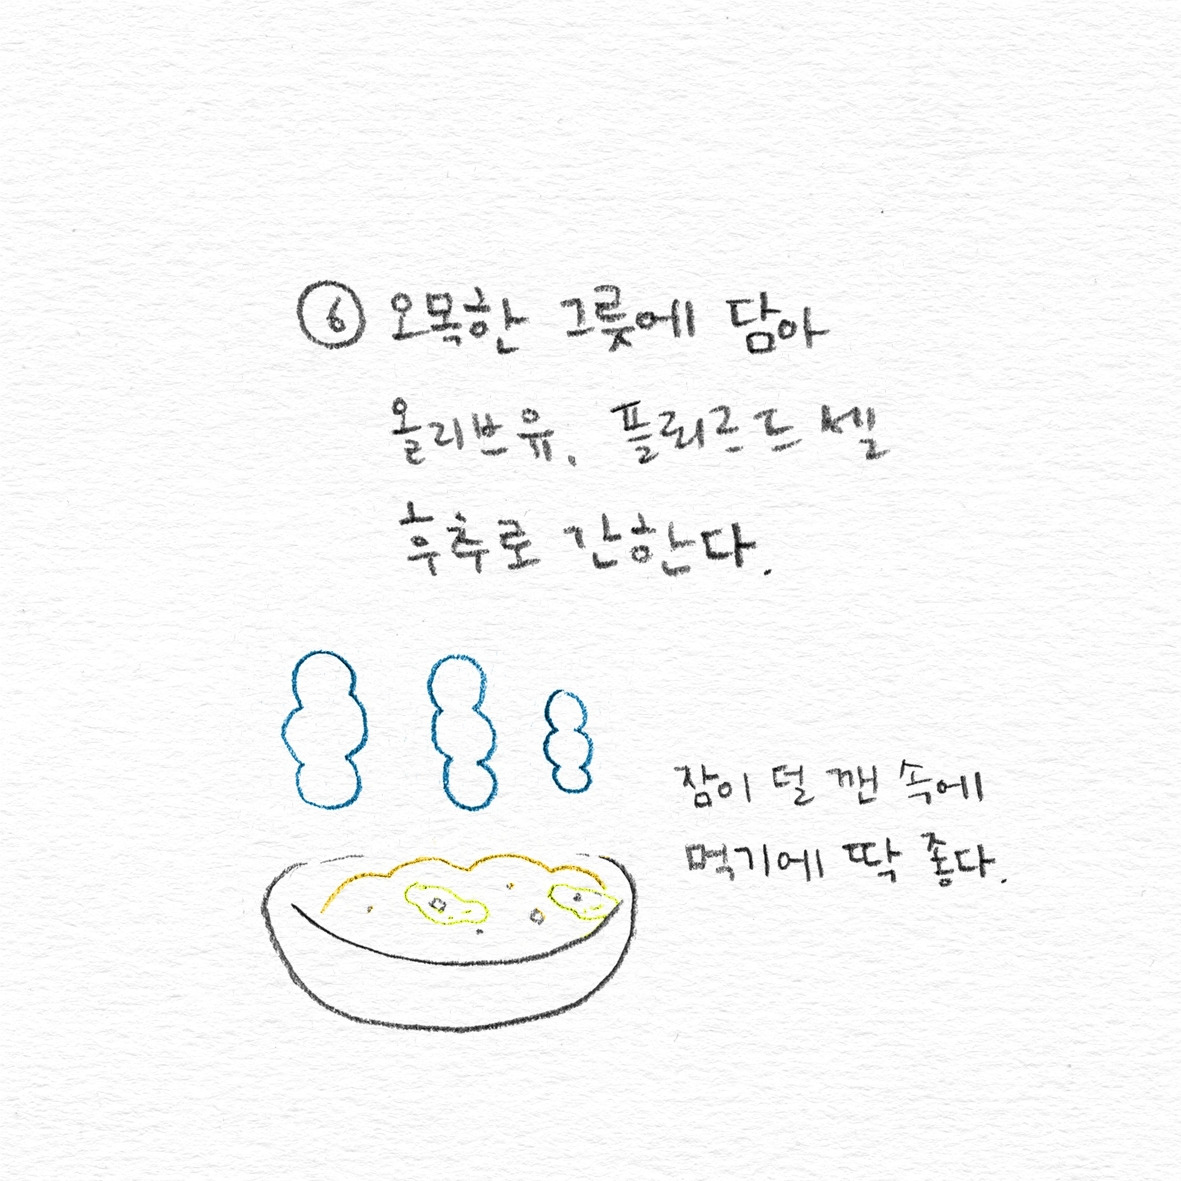 ⑥ 오목한 그릇에 담아
올리브유, 플뢰르드 셀
후추로 간한다.
잠이 덜 깬 속에
먹기에 딱 좋다.